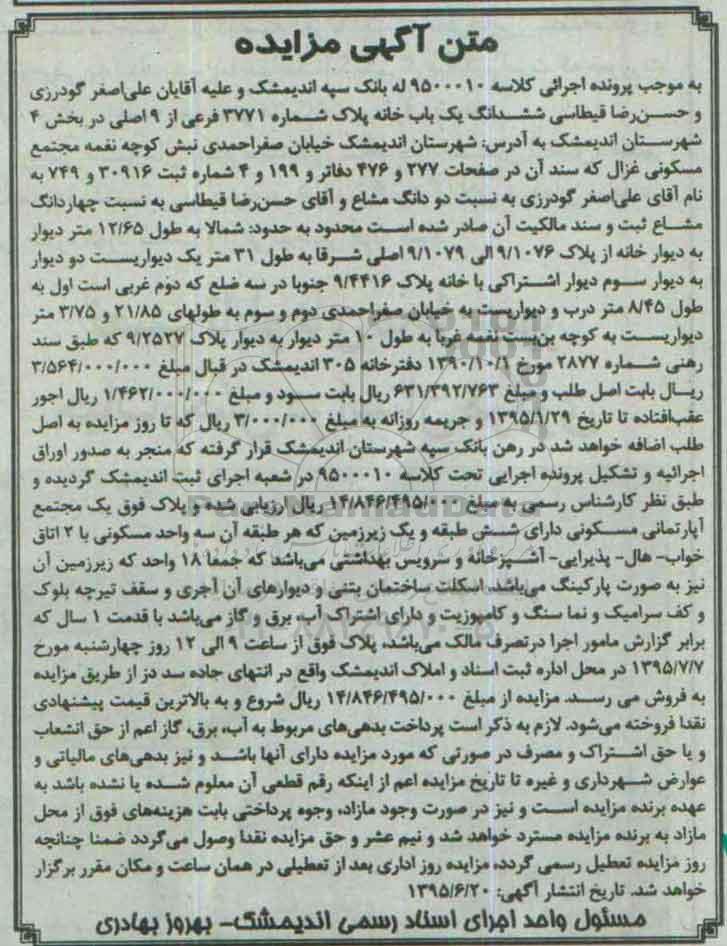 متن آگهی مزایده
به موجب پرونده اجرائی کلاسه ۹۵۰۰۰۱۰ له بانک سپه اندیمشک و علیه آقایان علی‌اصغر گودرزی
و حسن‌رضا قیطاسی ششدانگ یک باب خانه پلاک شماره ۳۷۷۱ فرعی از ۹ اصلی در بخش ۴
شهرستان اندیمشک به آدرس: شهرستان اندیمشک خیابان صفراحمدی نبش کوچه نغمه مجتمع
مسکونی غزال که سند آن در صفحات ۲۷۷ و ۴۷۶ دفاتر و ۱۹۹ و ۴ شماره ثبت ۳۰۹۱۶ و ۷۴۹ به
نام آقای علی‌اصغر گودرزی به نسبت دو دانگ مشاع و آقای حسن‌رضا قیطاسی به نسبت چهاردانگ
مشاع ثبت و سند مالکیت آن صادر شده است محدود به حدود: شمالا به طول ۱۲/۶۵ متر دیوار
به دیوار خانه از پلاک ۹/۱۰۷۶ الی ۹/۱۰۷۹ اصلی شرقا به طول ۳۱ متر یک دیواریست دو دیوار
به دیوار سوم دیوار اشتراکی با خانه پلاک ۹/۴۴۱۶ جنوبا در سه ضلع که دوم غربی است اول به
طول ۸/۴۵ متر درب و دیواریست به خیابان صفراحمدی دوم و سوم به طولهای ۲۱/۸۵ و ۳/۷۵ متر
دیواریست به کوچه بن‌بست نغمه غربا به طول ۱۰ متر دیوار به دیوار پلاک ۹/۲۵۲۷ که طبق سند
رهنی شماره ۲۸۷۷ مورخ ۱۳۹۰/۱۰/۱ دفترخانه ۳۰۵ اندیمشک در قبال مبلغ ۳/۵۶۴/۰۰۰/۰۰۰
ریال بابت اصل طلب و مبلغ ۶۳۱/۳۹۲/۷۶۳ ریال بابت سود و مبلغ ۱/۴۶۲/۰۰۰/۰۰۰ ریال اجور
عقب‌افتاده تا تاریخ ۱۳۹۵/۱/۲۹ و جریمه روزانه به مبلغ ۳/۰۰۰/۰۰۰ ریال که تا روز مزایده به اصل
طلب اضافه خواهد شد در رهن بانک سپه شهرستان اندیمشک قرار گرفته که منجر به صدور اوراق
اجرائیه و تشکیل پرونده اجرایی تحت کلاسه ۹۵۰۰۰۱۰ در شعبه اجرای ثبت اندیمشک گردیده و
طبق نظر کارشناس رسمی به مبلغ ۱۴/۸۴۶/۴۹۵/۰۰۰ ریال ارزیابی شده و پلاک فوق یک مجتمع
آپارتمانی مسکونی دارای شش طبقه و یک زیرزمین که هر طبقه آن سه واحد مسکونی با ۲ اتاق
خواب- هال- پذیرایی- آشپزخانه و سرویس بهداشتی می‌باشد که جمعا ۱۸ واحد که زیرزمین آن
نیز به صورت پارکینگ می‌باشد. اسکلت ساختمان بتنی و دیوارهای آن آجری و سقف تیرچه بلوک
و کف سرامیک و نما سنگ و کامپوزیت و دارای اشتراک آب، برق و گاز می‌باشد با قدمت ۱ سال که
برابر گزارش مامور اجرا درتصرف مالک می‌باشد، پلاک فوق از ساعت ۹ الی ۱۲ روز چهارشنبه مورخ
۱۳۹۵/۷/۷ در محل اداره ثبت اسناد و املاک اندیمشک واقع در انتهای جاده سد دز از طریق مزایده
به فروش می رسد. مزایده از مبلغ ۱۴/۸۴۶/۴۹۵/۰۰۰ ریال شروع و به بالاترین قیمت پیشنهادی
نقدا فروخته می‌شود. لازم به ذکر است پرداخت بدهی‌های مربوط به آب، برق، گاز اعم از حق انشعاب
و یا حق اشتراک و مصرف در صورتی که مورد مزایده دارای آنها باشد و نیز بدهی‌های مالیاتی و
عوارض شهرداری و غیره تا تاریخ مزایده اعم از اینکه رقم قطعی آن معلوم شده یا نشده باشد به
عهده برنده مزایده است و نیز در صورت وجود مازاد، وجوه پرداختی بابت هزینه‌های فوق از محل
مازاد به برنده مزایده مسترد خواهد شد و نیم عشر و حق مزایده نقدا وصول می‌گردد ضمنا چنانچه
روز مزایده تعطیل رسمی گردد، مزایده روز اداری بعد از تعطیلی در همان ساعت و مکان مقرر برگزار
خواهد شد. تاریخ انتشار آگهی: ۱۳۹۵/۶/۲۰
مسئول واحد اجرای اسناد رسمی اندیمشک- بهروز بهادری